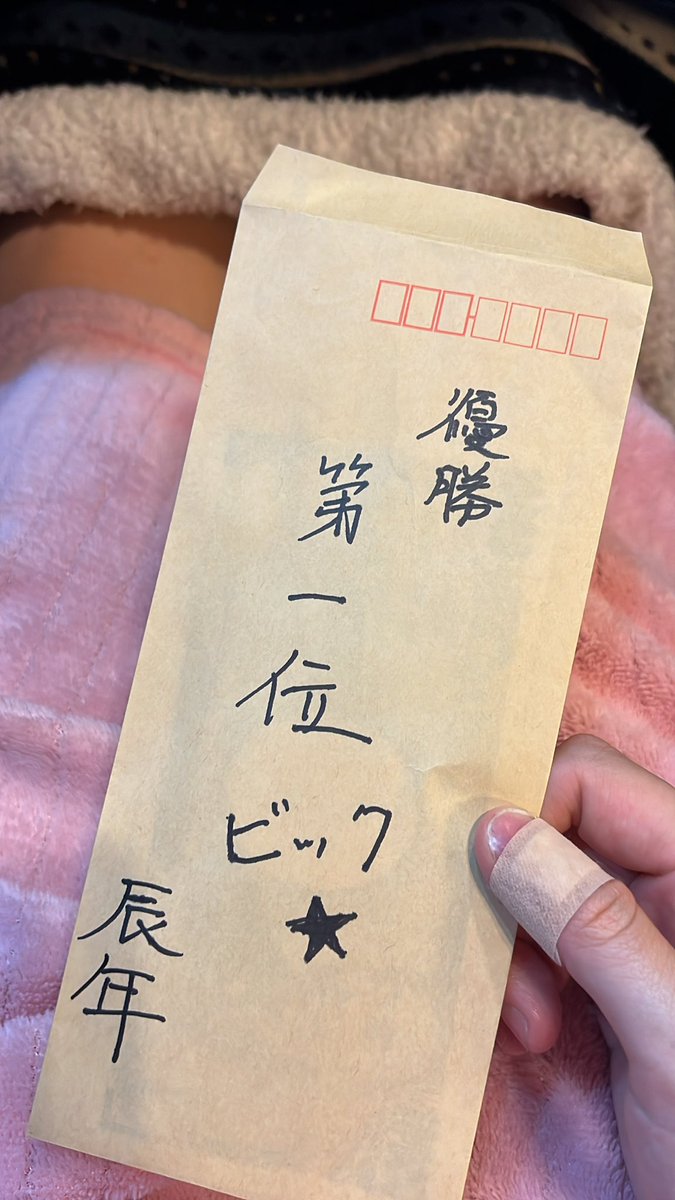 優勝
第一位
ビック
★
辰年